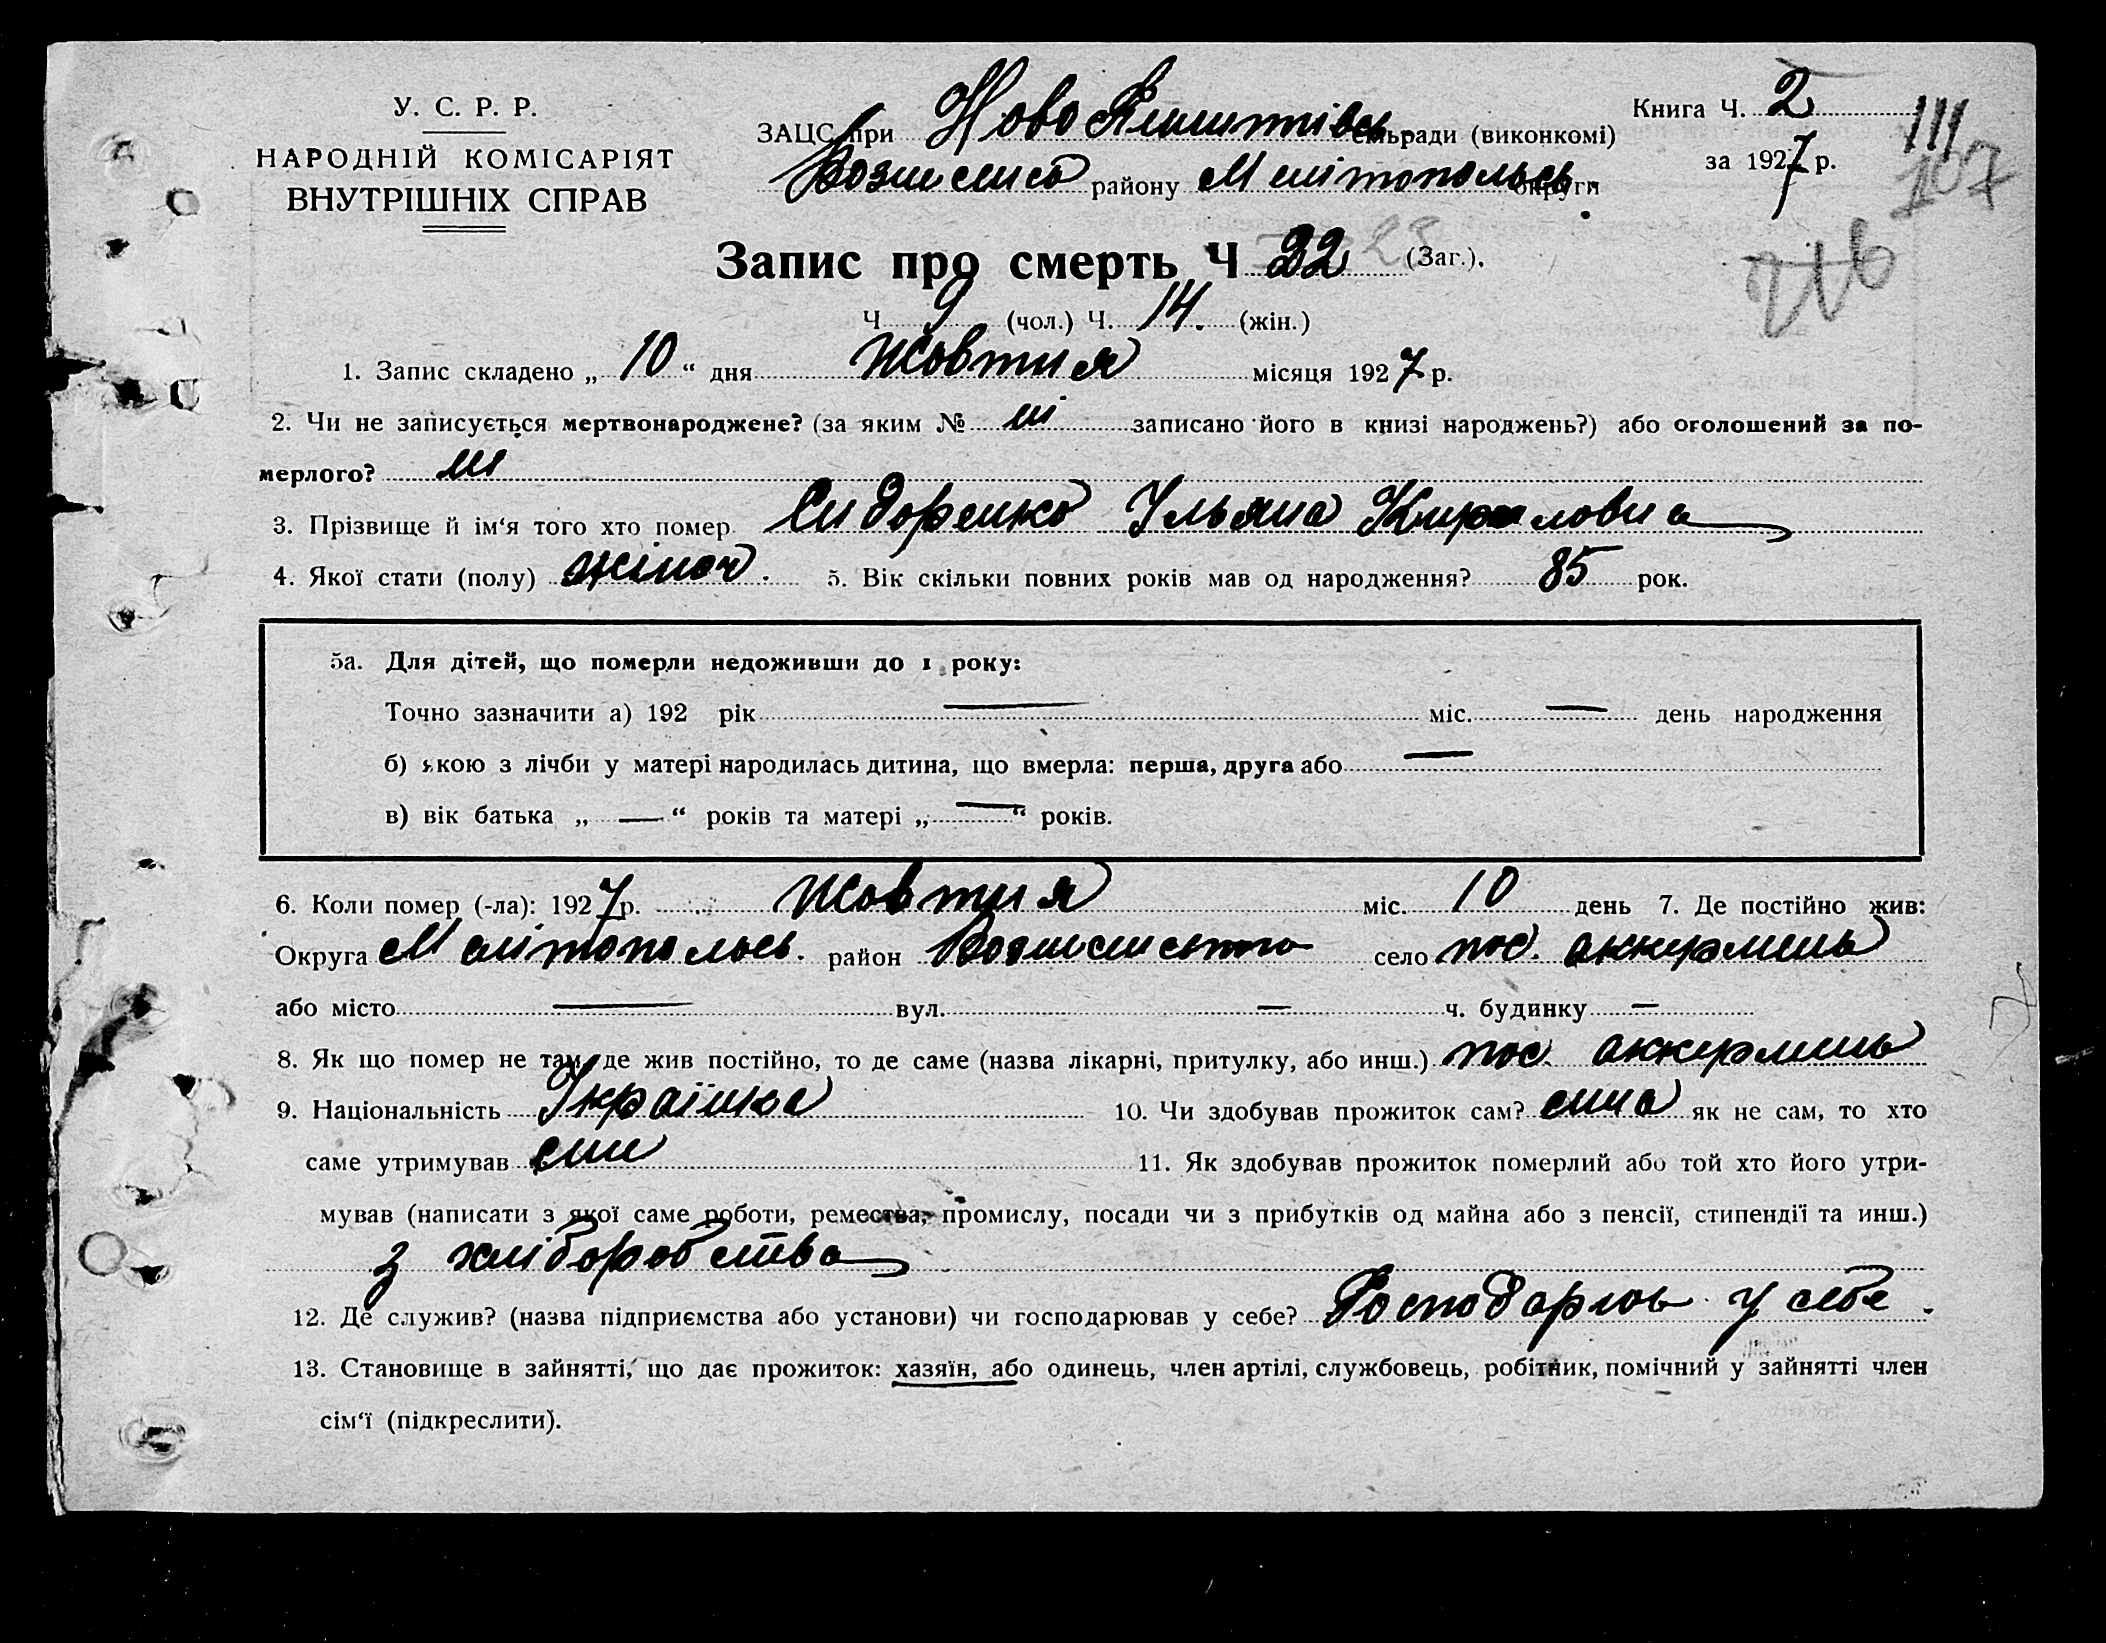 У. С. Р. Р.
НАРОДНІЙ КОМІСАРІЯТ
ВНУТРІШНІХ СПРАВ
ЗАЦС при Ново Пилипівсь. сільради (виконкомі)
Вознесенсь району Мелітопольсь. округи
Книга Ч. 2
за 1927 р.
111
107
Запис про смерть Ч 22 (Заг.).
Ч 9 (чол.) Ч. 14. (жін.)
1. Запис складено „ 10 “ дня Жовтня місяця 1927 р.
2. Чи не записується мертвонароджене? (за яким № ні записано його в книзі народжень?) або оголошений за по-
мерлого? ні
3. Прізвище й ім‘я того хто помер Сидоренко Ульяна Кириловна
4. Якої стати (полу) жіноч. 5. Вік скільки повних років мав од народження? 85 рок.
5а. Для дітей, що померли недоживши до 1 року:
Точно зазначити а) 192 рік — міс. — день народження
б) якою з лічби у матері народилась дитина, що вмерла: перша, друга або —
в) вік батька „ — “ років та матері „ — “ років.
6. Коли помер (-ла): 1927 р. Жовтня міс. 10 день 7. Де постійно жив:
Округа Мелітопольсь. район Вознесенського село пос. Аккермень
або місто — вул. — ч. будинку —
8. Як що помер не там, де жив постійно, то де саме (назва лікарні, притулку, або инш.) пос. Аккермень
9. Національність Українка 10. Чи здобував прожиток сам? сама як не сам, то хто
саме утримував 11. Як здобував прожиток померлий або той хто його утри-
мував (написати з якої саме роботи, ремества, промислу, посади чи з прибутків од майна або з пенсії, стипендії та инш.)
з хліборобства
12. Де служив? (назва підприємства або установи) чи господарював у себе? Господарюв у себе.
13. Становище в зайнятті, що дає прожиток: хазяїн, або одинець, член артілі, службовець, робітник, помічний у зайнятті член
сім‘ї (підкреслити).